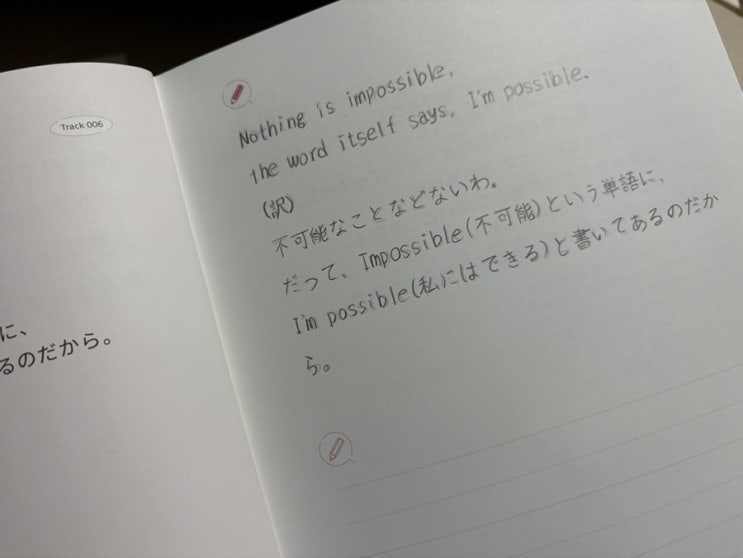 Track 006
に、
るのだから。
Nothing is impossible,
the word itself says, I'm possible.
(訳)
不可能なことなどないわ。
だって、Impossible(不可能)という単語に、
I'm possible(私にはできる)と書いてあるのだか
ら。